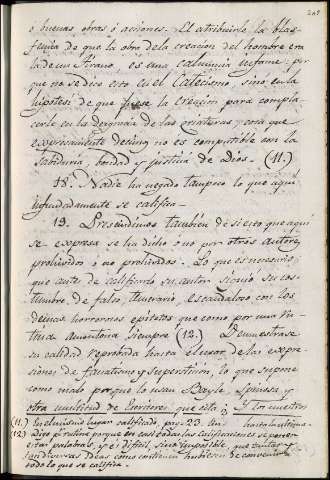 ó buenas obras ó acciones. El atribuirle la blas-
femia de que la obra de la creacion del hombre era
la de un Tirano, es una calumnia nefame: por
que no se dice esto en el Catecismo, sino en la
hipotesi de que fuese la Creacion para compla-
cerse en la desgracia de las criaturas, cosa que
expresamente detesta, no es compatible con la
Sabiduria, bondad y justicia de Dios. (11.)
18. Nadie ha negado tampoco lo que aqui
infundadamente se califica.
19. Prescindimos tambien de si esto que aqui
se expresa se ha dicho ó no por otros autores
prohividos ó no prohividos. Lo que es necesario
que ante de calificarlo su autor siguió su cos-
tumbre, de falso, temerario, escandaloso con los
demas horrorosos epitetos que como por una ru-
tina amontona siempre (12.) Demuestrase
su calidad reprobada hasta el usar de las expre-
siones de fanatismo y supersticion, lo que supone
como malo porque lo usan Bayle, Spinosa, y
otra multitud de Escritores que cita
(11.) En el mismo lugar calificado pag. 23
(12.) Digo rutina porque en casi todas las calificaciones se ponen
estas palabras, y es dificil, sino imposible, que tantas
tan diversas Ideas como contienen hubiesen de convenir
todo lo que se califica.